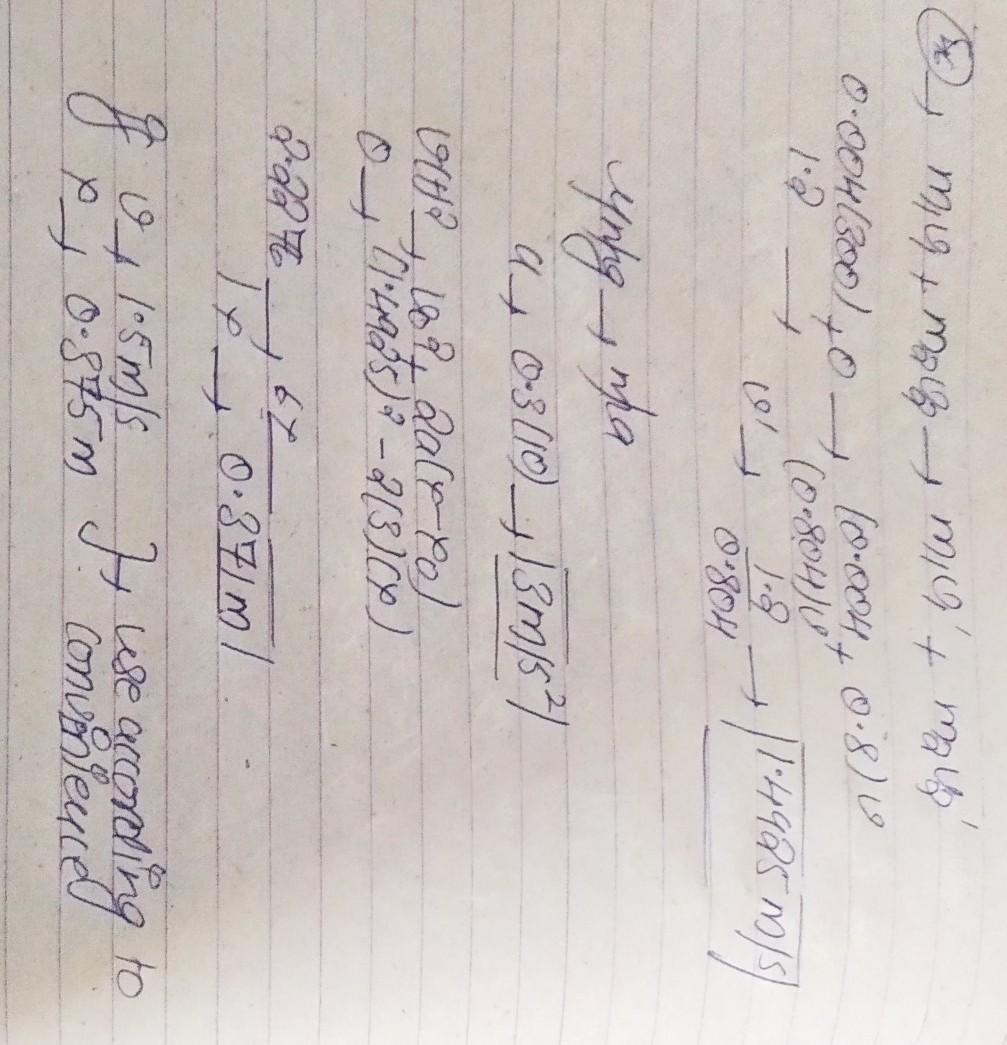 → m1v1 + m2v2 → m1v1' + m2v2'
0.004(300) + 0 → (0.004 + 0.8)v
1.2 → (0.804)v'
v' → 1.2/0.804 → 1.44925 m/s
μmg → ma
a → 0.3(10) → 3m/s²
→ v0² + 2a(x-x0)
0 → (1.4925)² - 2(3)(x)
2.2276 → 6x
x → 0.371m
If v → 1.5m/s } → use according to
x → 0.375m